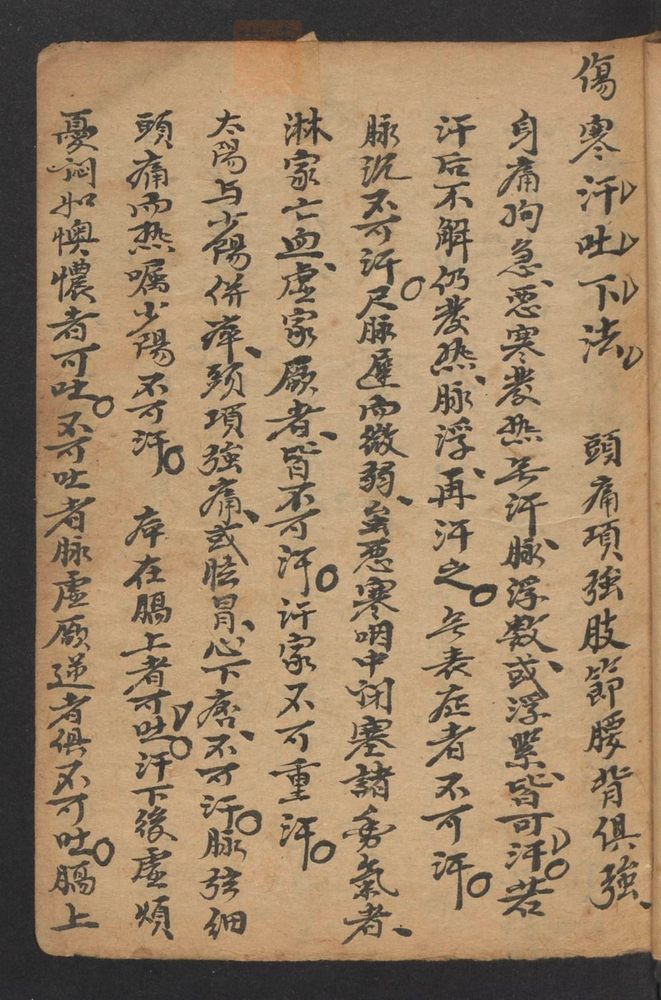 傷寒汗吐下法 頭痛項強肢節腰背俱強、
身痛拘急、惡寒發熱無汗脉浮數或浮緊皆可汗。若
汗后不解仍發热、脉浮、再汗之。無表症者不可汗。
脉沉不可汗。尺脉遲而微弱、者惡寒咽中閉塞諸動氣者、
淋家亡血、虛家厥者、皆不可汗。汗家不可重汗。
太陽与少陽併病、頭項強痛、或眩冒、心下痞、不可汗。脉弦細
頭痛而热属少陽不可汗。 病在膈上者可吐。汗下後虛煩
憂悶如懊憹者可吐。不可吐者脉虛厥逆者俱不可吐。膈上